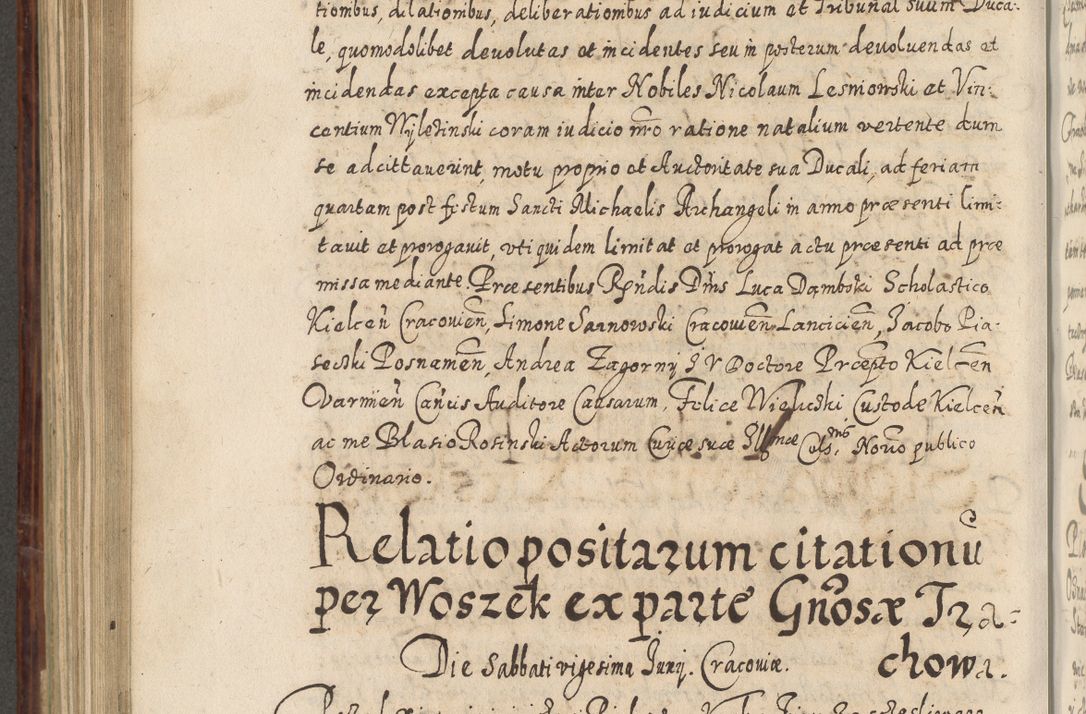 tionibus, dilationibus, deliberationibus ad iudicium et Tribunal suum Duca-
le, quomodolibet devolutas et incidentes seu in posterum devoluendas et
incidendas excepta causa inter Nobiles Nicolaum Lesniowski et Vin:
centium Wyleżinski coram iudicio nr̃o ratione natalium vertente dum
se adcittauerint, motu proprio et Auctoritate sua Ducali, ad feriam
quartam post festum Sancti Michaelis Archangeli in anno præsenti limi:
tauit et prorogauit, vti quidem limitat et prorogat actu præsenti ad præ
missa mediante. Præsentibus Rñdis Dñis Luca Dąmbski Scholastico
Kielceñ Cracovieñ, Simone Sarnowski Cracovieñ Lancicieñ, Jacobo Pia-
secski Posnameñ, Andrea Zagorny J V Doctore Præpto Kielceñ
Varmieñ Cañcis Auditore Causarum, Felice Wieucski Custode Kielceñ
ac me Blasio Rosinski Actorum Curiæ suæ Illmæ Cels.nis Nor̃io publico
Ordinario.
Relatio positarum citationũ
per Woszek ex parte Gñosæ Tra-
chowa.
Die Sabbati vigesima Junij. Cracoviæ.